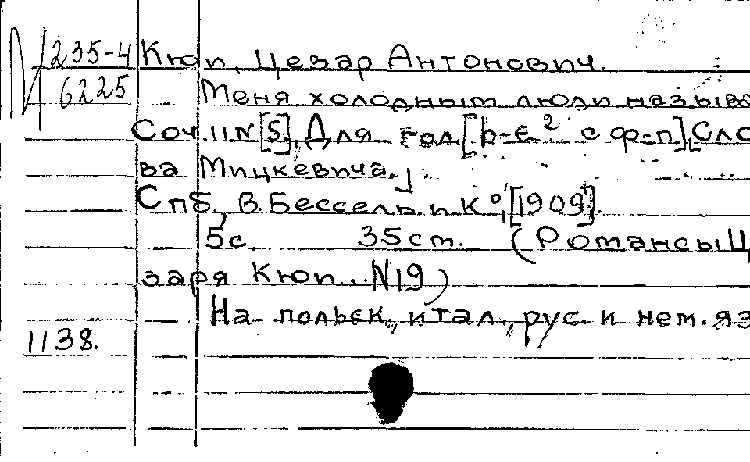 N 235-4 Кюи, Цезарь Антонович.
6225 Меня холодным люди называ
Соч. 11 N [5]. Для гол. [b-e² с ф-п], Сло
ва Мицкевича.
Спб, В. Бессель и К°, [1909].
5с. 35 ст. (Романсы Ц
заря Кюи. N 19)
На польск., итал., рус. и нем. яз
1138.